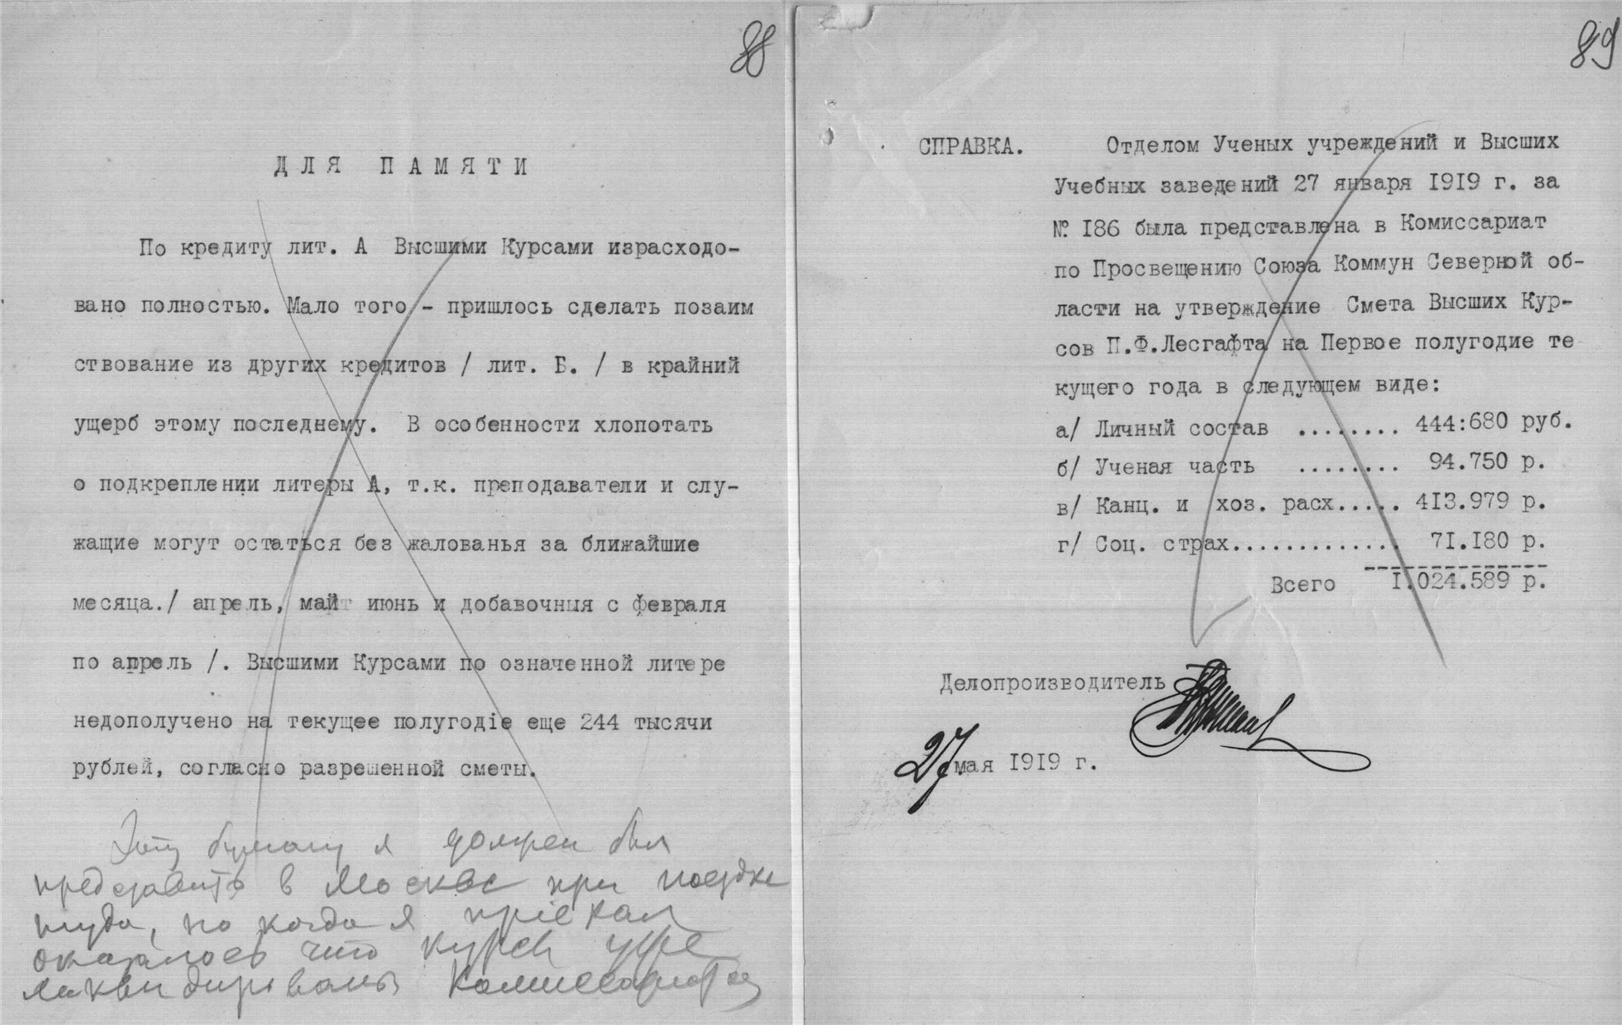 88
ДЛЯ ПАМЯТИ
По кредиту лит. А Высшими Курсами израсходо-
вано полностью. Мало того - пришлось сделать позаим
ствование из других кредитов / лит. Б. / в крайний
ущерб этому последнему. В особенности хлопотать
о подкреплении литеры А, т.к. преподаватели и слу-
жащие могут остаться без жалованья за ближайшие
месяца./ апрель, май июнь и добавочныя с февраля
по апрель /. Высшими Курсами по означенной литере
недополучено на текущее полугодіе еще 244 тысячи
рублей, согласно разрешенной сметы.
Эту бумагу я должен был
представить в Москве при поездке
туда, но когда я пріехал
оказалось что курсы уже
ликвидированы Комиссариатом
89
СПРАВКА. Отделом Ученых учреждений и Высших
Учебных заведений 27 января 1919 г. за
№ 186 была представлена в Комиссариат
по Просвещению Союза Коммун Северной об-
ласти на утверждение Смета Высших Кур-
сов П.Ф.Лесгафта на Первое полугодие те
кущего года в следующем виде:
а/ Личный состав ........ 444:680 руб.
б/ Ученая часть ........ 94.750 р.
в/ Канц. и хоз. расх..... 413.979 р.
г/ Соц. страх............. 71.180 р.
Всего 1.024.589 р.
Делопроизводитель
27 мая 1919 г.